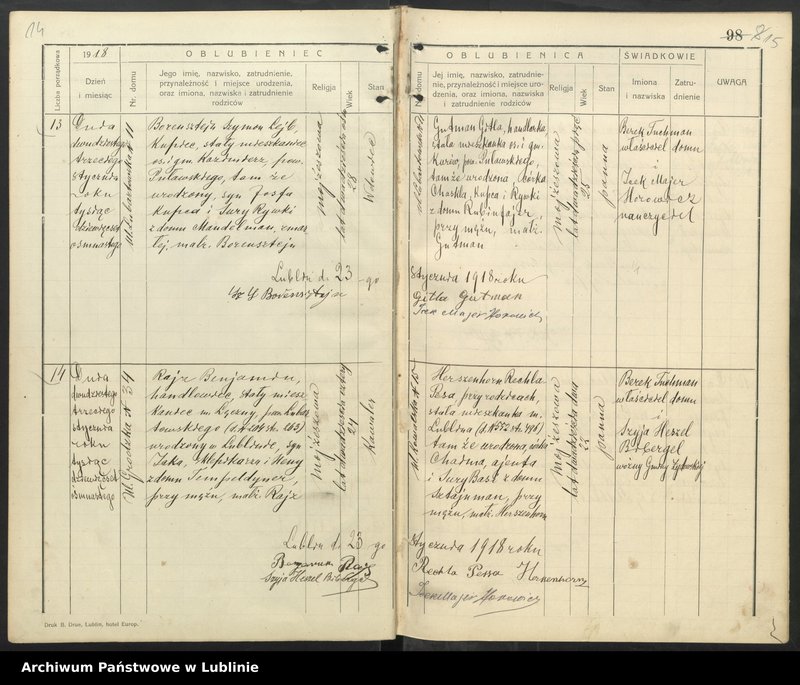 14
98
815
Liczba porządkowa
1918
Dzień
i miesiąc
OBLUBIENIEC
Nr. domu
Jego imię, nazwisko, zatrudnienie,
przynależność i miejsce urodzenia,
oraz imiona, nazwiska i zatrudnienie
rodziców
Religja
Wiek
Stan
OBLUBIENICA
Nr. domu
Jej imię, nazwisko, zatrudnie-
nie, przynależność i miejsce uro-
dzenia, oraz imiona, nazwiska
i zatrudnienie rodziców
Religja
Wiek
Stan
ŚWIADKOWIE
Imiona
i nazwiska
Zatru-
dnienie
UWAGA
13
Dnia
dwudziestego
trzeciego
stycznia
roku
tysiąc
dziewięćset
osmnastego
Borensztejn Szymon Lejb,
Kupiec, stały mieszkaniec
os. i gm. Kazimierz, pow.
Puławskiego, tamże
urodzony, syn Josfa
Kupca i Sury Rywki
z domu Mandelman, zmar
łej, małż. Borensztejn
mojżeszowa
28
Lublin d. 23-go
Gutman Gitla, handlarka,
stała mieszkanka os. i gm.
Karów, pow. Puławskiego,
tamże urodzona, córka
Chaskla, Kupca i Rywki
z domu Rubinfajer,
przy mężu, małż.
Gutman
mojżeszowa
lat dwadzieścia pięć
25
panna
Berek Tuchman
właściciel domu
i
Icek Majer
Horowicz
nauczyciel
Stycznia 1918 roku
Gitla Gutman
Icek Majer Horowicz
14
Dnia
dwudziestego
trzeciego
stycznia
roku
tysiąc
dziewięćset
osmnastego
Ul. Grodzka № 34
Rajz Benjamin,
handlowiec, stały miesz
kaniec
urodzony w Lublinie, syn
z domu Tempeldyner,
przy mężu, małż. Rajz
mojżeszowa
lat dwadzieścia cztery
24
Kawaler
Lublin d. 23-go
Herszenhorn Rechla
Pesa, przy rodzicach,
stała mieszkanka m.
Lublina
tamże urodzona, córka
Chaima, ajenta
i Sury Basi z domu
Sztajnman, przy
mężu, małż. Herszenhorn
mojżeszowa
lat dwadzieścia dwa
22
panna
Berek Tuchman
właściciel domu
i
Szyja Heszel
Bibergel
woźny Gminy Żydowskiej
Stycznia 1918 roku
Rechla Pessa Herszenhorn
Icek Majer Horowicz
Druk B. Drue, Lublin, hotel Europ.
Archiwum Państwowe w Lublinie